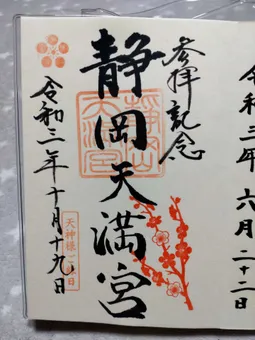 令和三年六月二十二日
参拝記念
静岡天満宮
静岡
天満宮
令和三年十月十九日